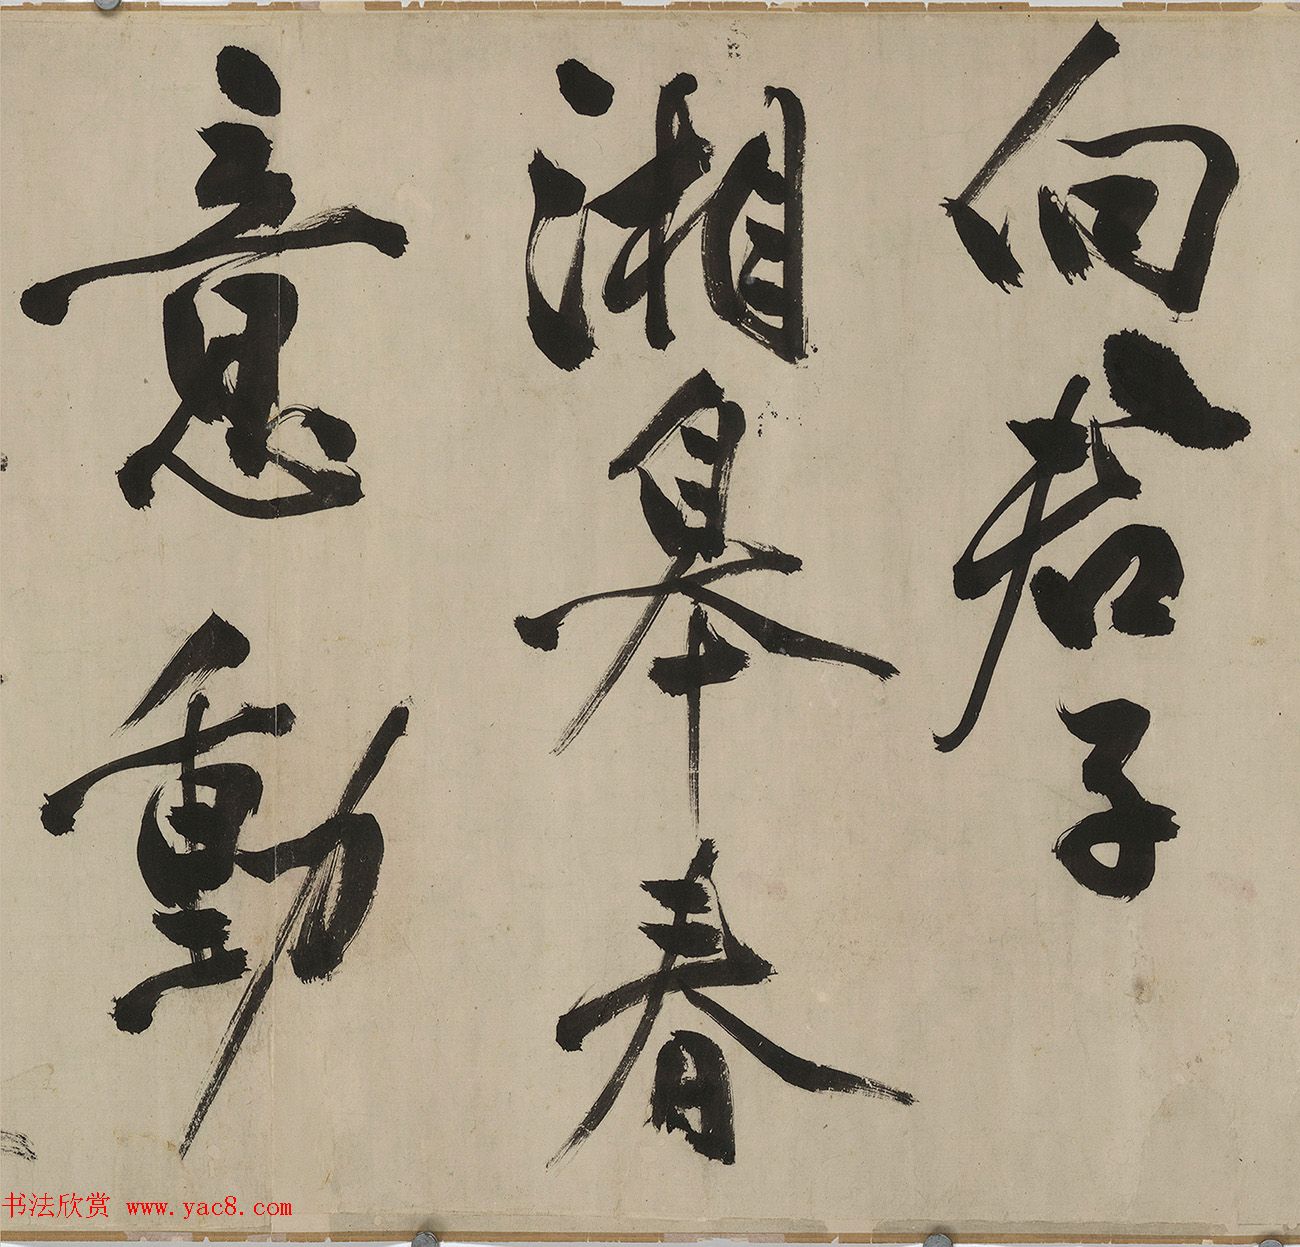 向若子
湘皋春
意動
书法欣赏 www.yac8.com